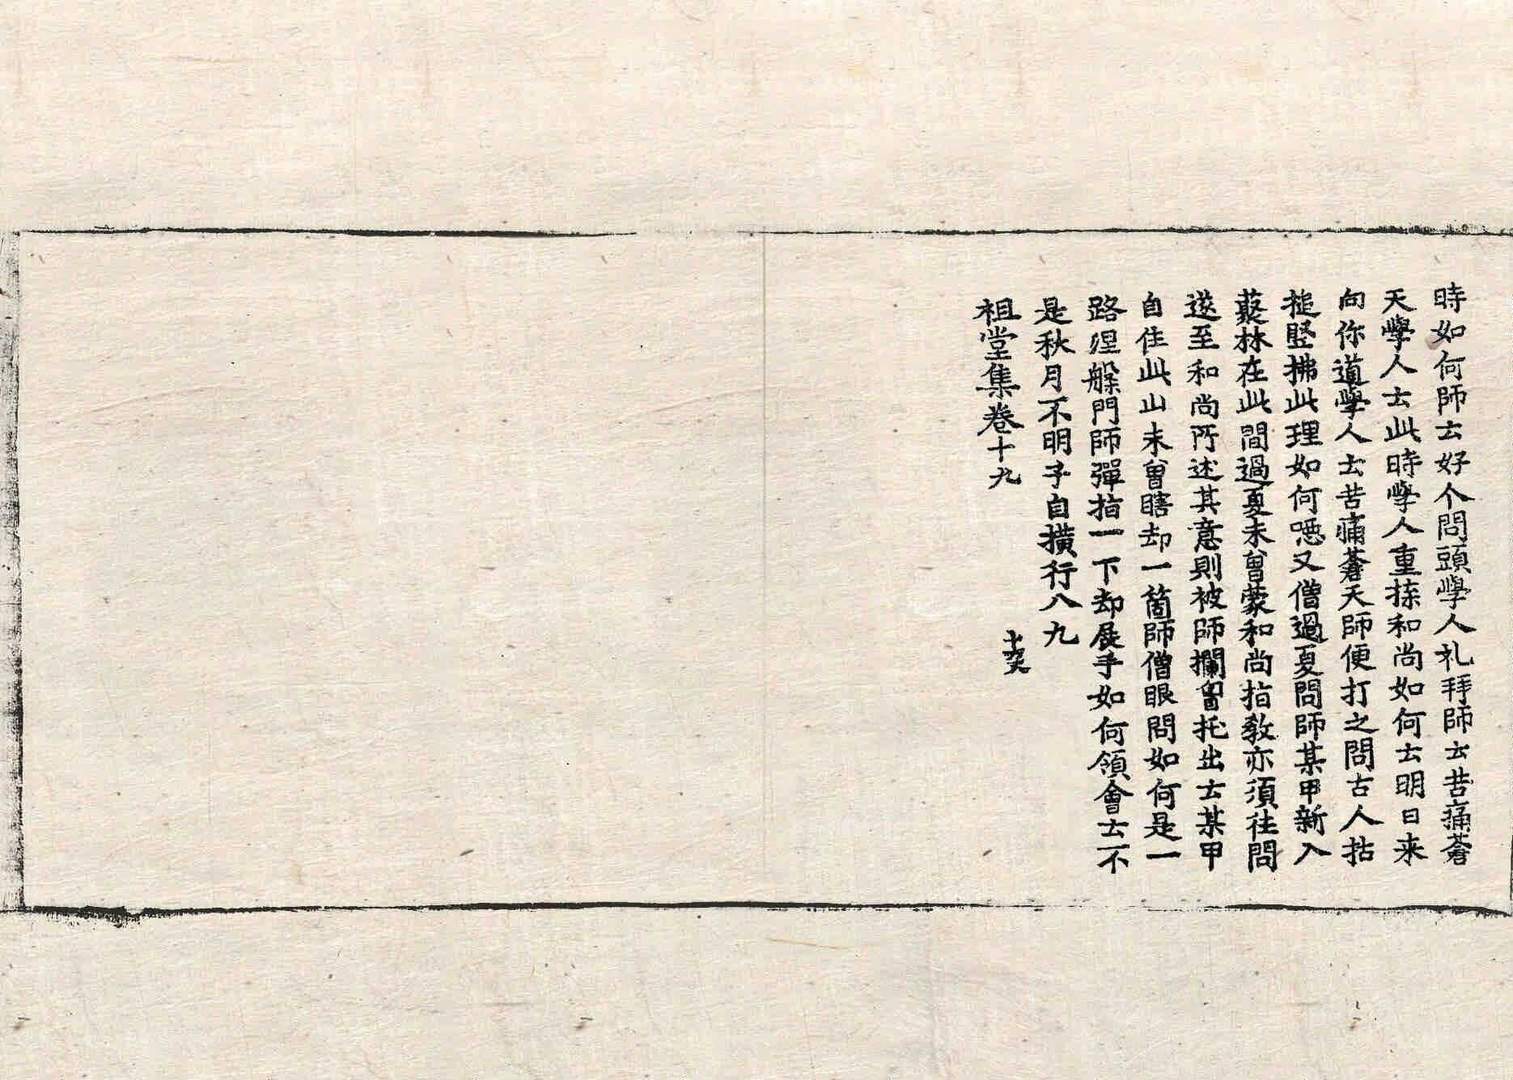 時如何師云好个問頭學人礼拜師云苦痛蒼
天學人云此時學人重揀和尚如何云明日来
向你道學人云苦痛蒼天師便打之問古人拈
搥竪拂此理如何噁又僧過夏問師某甲新入
藂林在此間過夏未曾蒙和尚指教亦須往問
遂至和尚所述其意則被師攔胷托出云某甲
自住此山未曾瞎却一箇師僧眼問如何是一
路涅槃門師彈指一下却展手如何領會云不
是秋月不明子自撗行八九
祖堂集卷十九